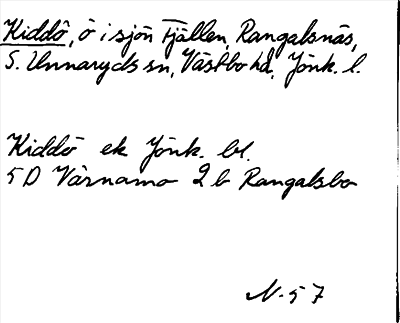 Kiddö, ö i sjön Fjällen, Rangalsnäs,
S. Unnaryds sn, Västbo hd, Jönk. l.
Kiddö ek Jönk. bl.
5 D Värnamo 2 b Rangalsbo
N-57